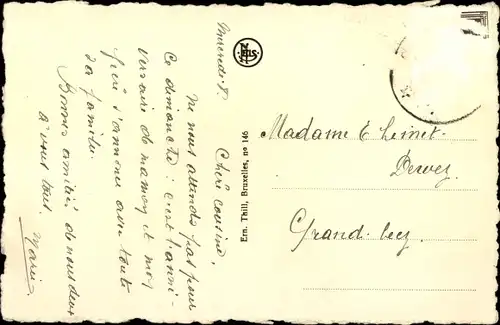 Mercredi 8.
Chère cousine,
Ne nous attends pas pour
ce dimanche : c'est l'anni-
versaire de maman et mon
frère s'amène avec toute
sa famille.
Bonnes amitiés de nous deux
à vous tous.
Maria
Ern. Thill, Bruxelles, no 146
NELS
Madame E. Lemet
Dewez
Grand-leez